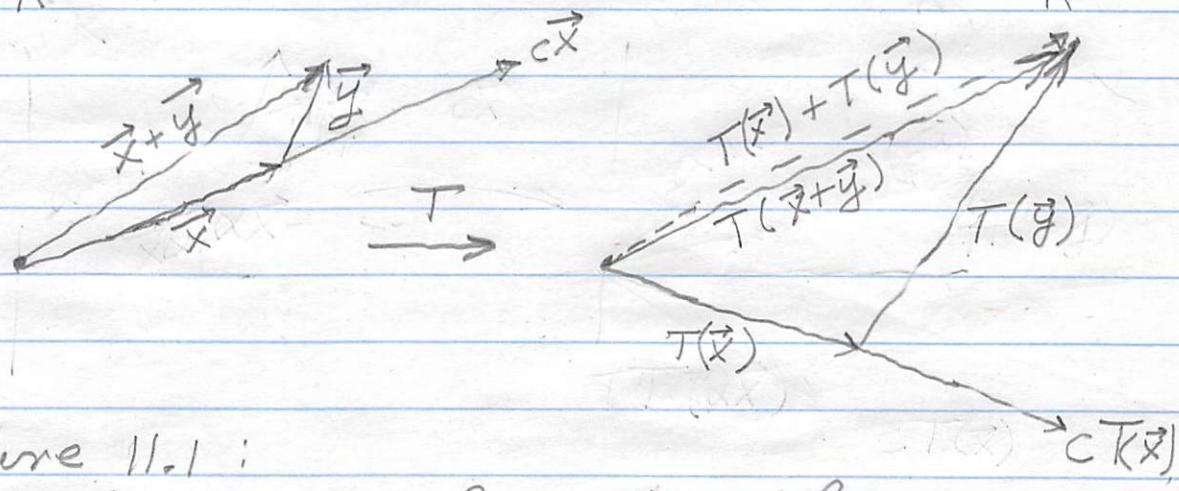 c\vec{x}
\vec{x}+\vec{y}
\vec{y}
\vec{x}
T
T(\vec{x}) + T(\vec{y})
T(\vec{x}+\vec{y})
T(\vec{y})
T(\vec{x})
c T(\vec{x})
ure 11.1 :